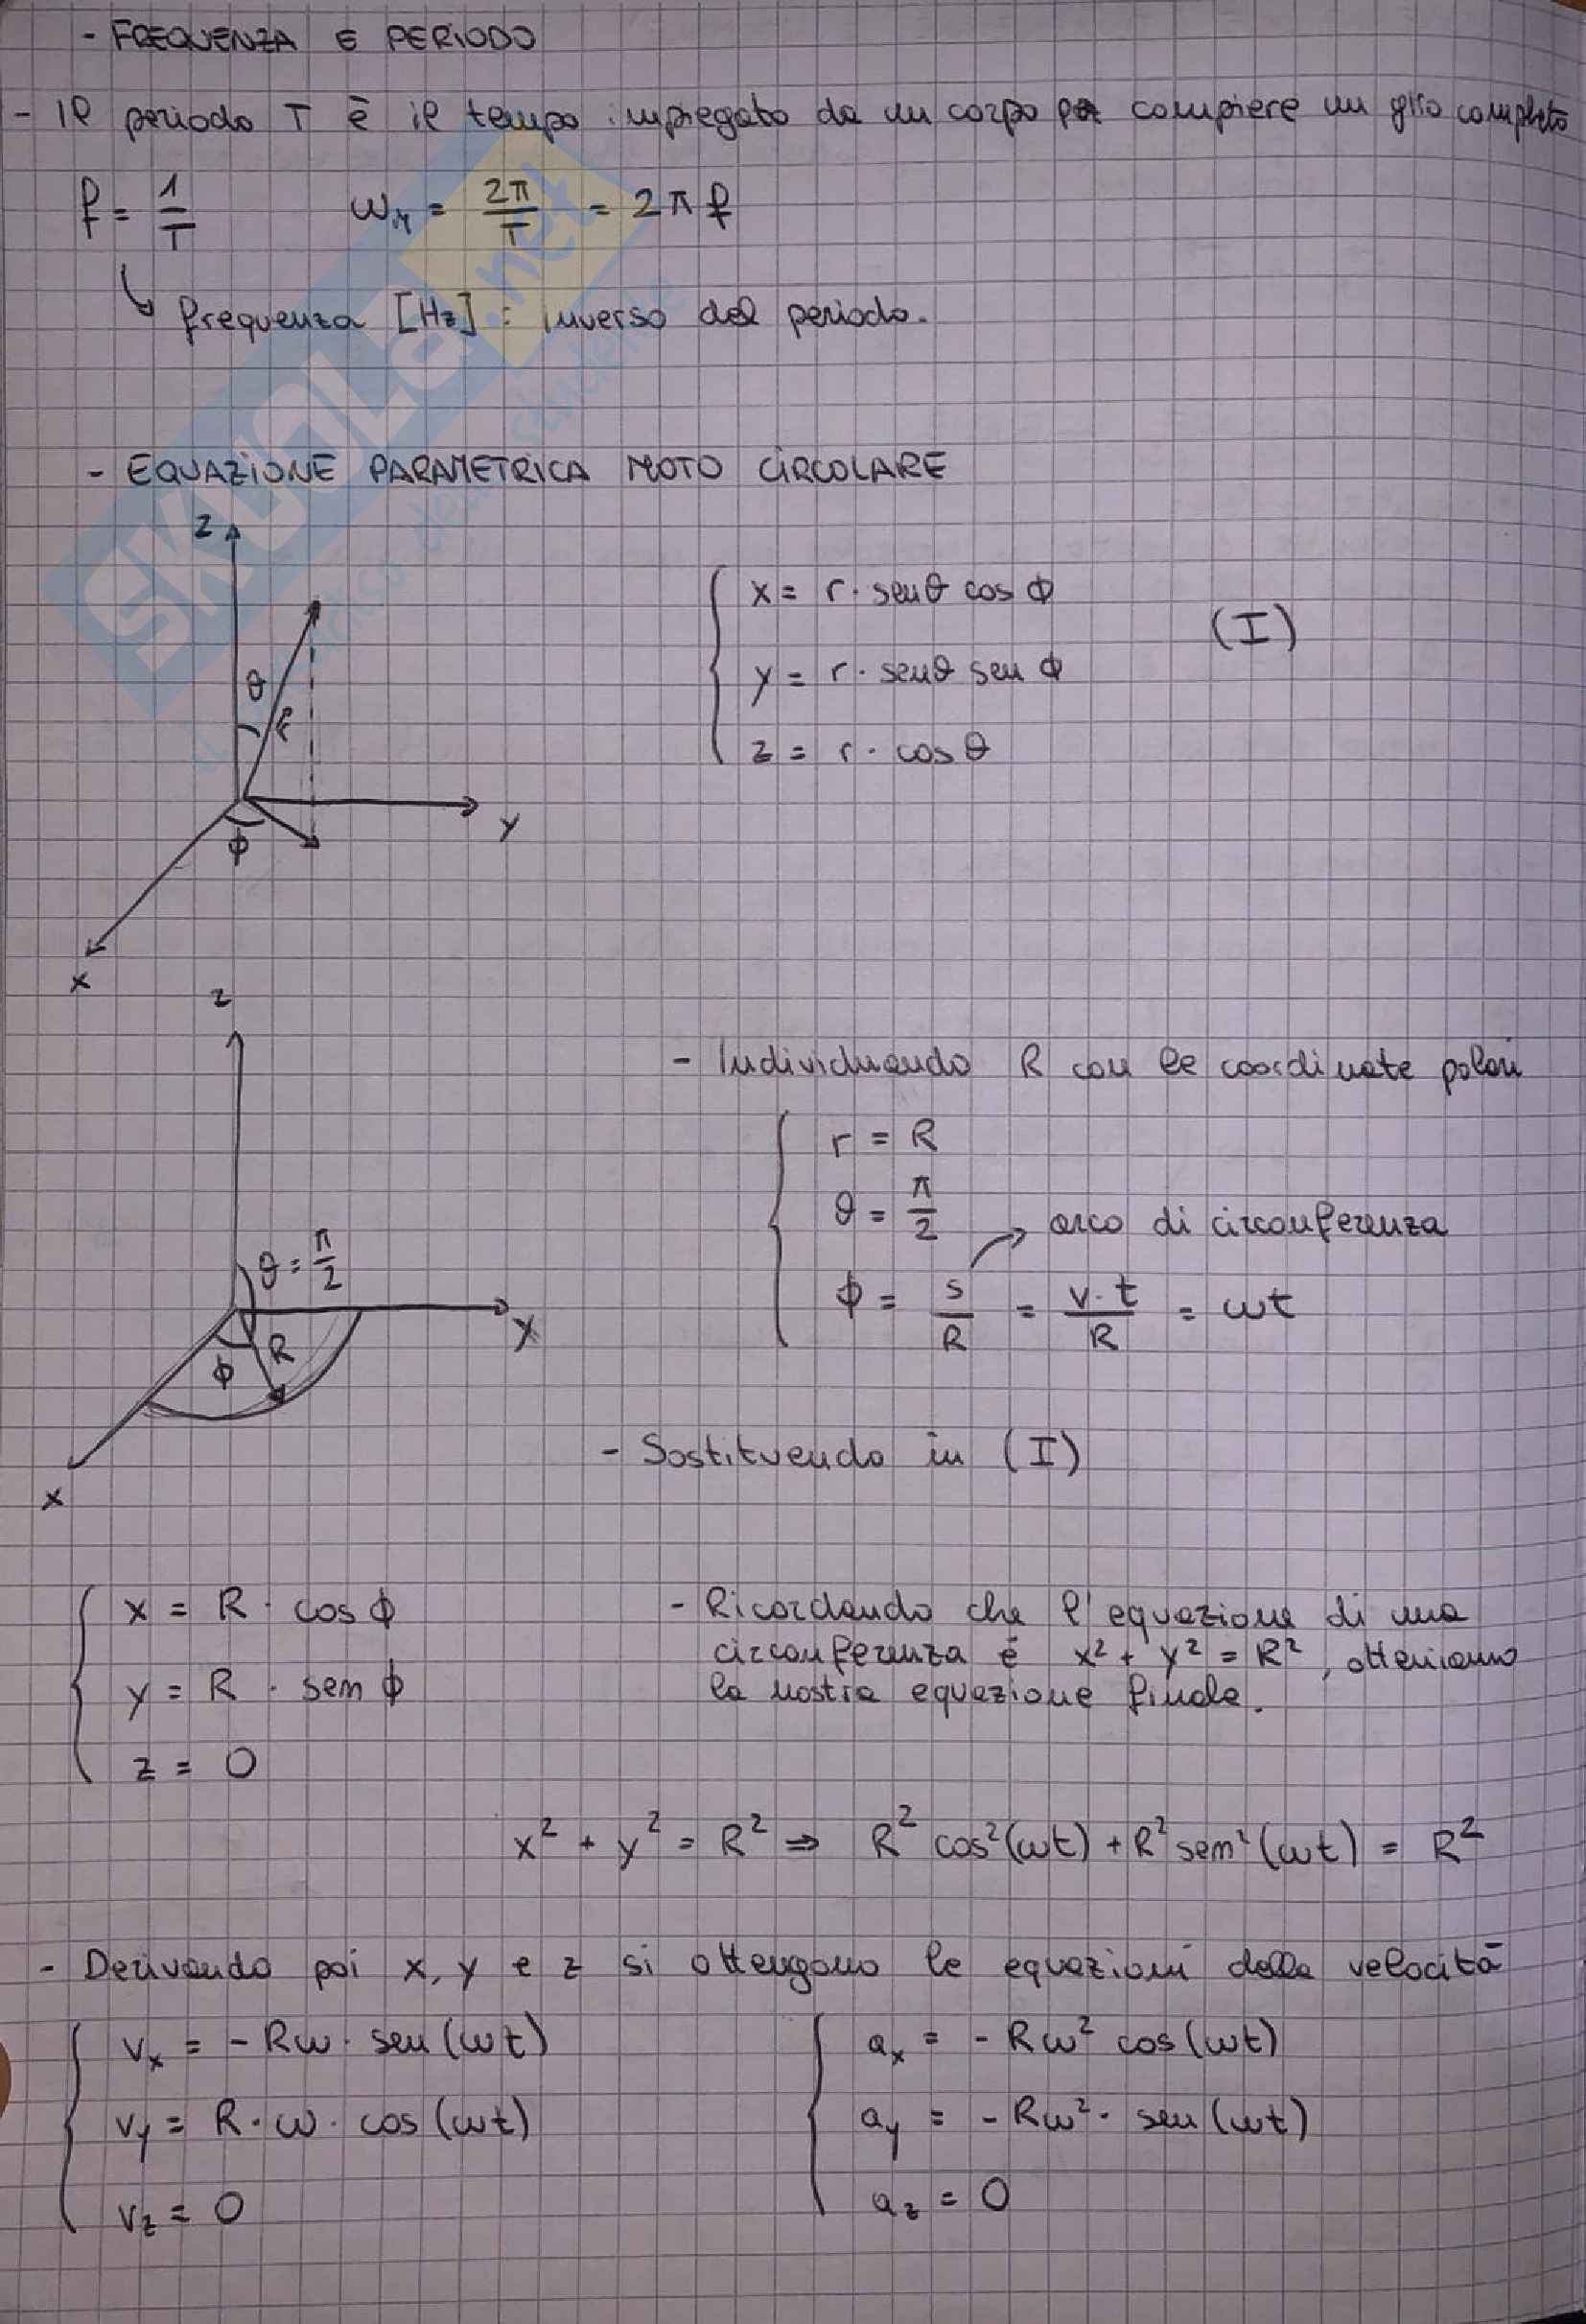 - FREQUENZA E PERIODO
- Il periodo T è il tempo impiegato da un corpo per compiere un giro completo
f = 1/T ω_M = 2π/T = 2πf
↳ frequenza [Hz] : inverso del periodo.
- EQUAZIONE PARAMETRICA MOTO CIRCOLARE
z
θ
r
y
ϕ
x
x = r · senθ cos ϕ
y = r · senθ sen ϕ
z = r · cos θ
(I)
z
θ = π/2
y
R
ϕ
x
- Individuando R con le coordinate polari
r = R
θ = π/2
→ arco di circonferenza
ϕ = s/R = v·t/R = ωt
- Sostituendo in (I)
x = R · cos ϕ
y = R · sen ϕ
z = 0
- Ricordando che l'equazione di una
circonferenza è x² + y² = R², otteniamo
la nostra equazione finale.
x² + y² = R² ⇒ R² cos²(ωt) + R² sen²(ωt) = R²
- Derivando poi x, y e z si ottengono le equazioni della velocità
v_x = - Rω · sen(ωt)
v_y = R · ω · cos(ωt)
v_z = 0
a_x = - Rω² cos(ωt)
a_y = - Rω² · sen(ωt)
a_z = 0
SKUOLA.net